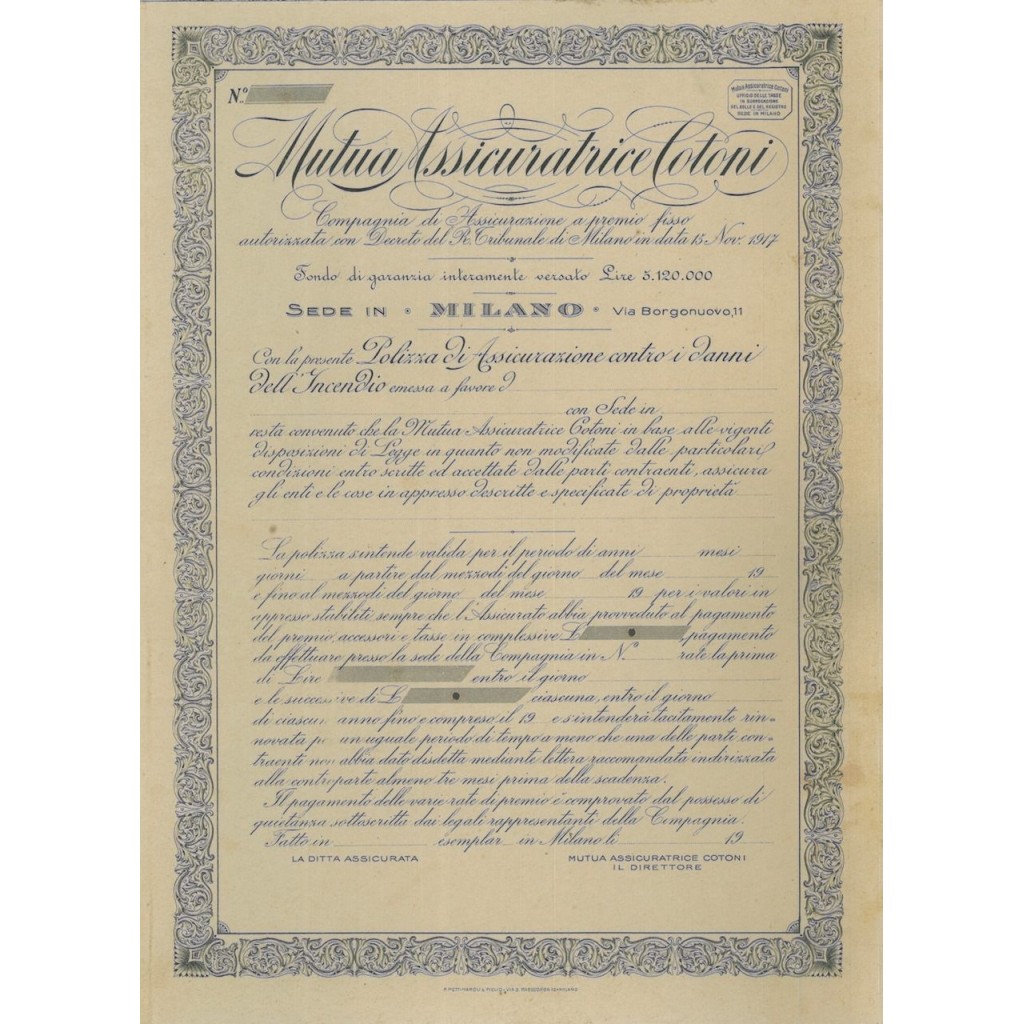 N.º
Mutua Assicuratrice Cotoni
UFFICIO DELLE TASSE
IN SURROGAZIONE
DEL BOLLO E DEL REGISTRO
SEDE IN MILANO
Mutua Assicuratrice Cotoni
Compagnia di Assicurazione a premio fisso
autorizzata con Decreto del R. Tribunale di Milano in data 15 Nov. 1917
Fondo di garanzia interamente versato Lire 5.120.000
SEDE IN • MILANO • Via Borgonuovo, 11
Con la presente Polizza di Assicurazione contro i danni
dell'Incendio emessa a favore d
con Sede in
resta convenuto che la Mutua Assicuratrice Cotoni in base alle vigenti
disposizioni di Legge in quanto non modificate dalle particolari
condizioni entro scritte ed accettate dalle parti contraenti, assicura
gli enti e le cose in appresso descritte e specificate di proprietà
La polizza s'intende valida per il periodo di anni mesi
giorni a partire dal mezzodì del giorno del mese 19
e fino al mezzodì del giorno del mese 19 per i valori in
appresso stabiliti, sempre che l'Assicurato abbia provveduto al pagamento
del premio, accessori e tasse in complessive L , pagamento
da effettuare presso la sede della Compagnia in N.º rate la prima
di Lire entro il giorno
e le successive di L ciascuna, entro il giorno
di ciascun anno fino e compreso il 19 e s'intenderà tacitamente rin=
novata p un uguale periodo di tempo a meno che una delle parti con=
traenti non abbia dato disdetta mediante lettera raccomandata indirizzata
alla controparte almeno tre mesi prima della scadenza.
Il pagamento delle varie rate di premio è comprovato dal possesso di
quietanza sottoscritta dai legali rappresentanti della Compagnia.
Fatto in esemplar in Milano li 19
LA DITTA ASSICURATA
MUTUA ASSICURATRICE COTONI
IL DIRETTORE